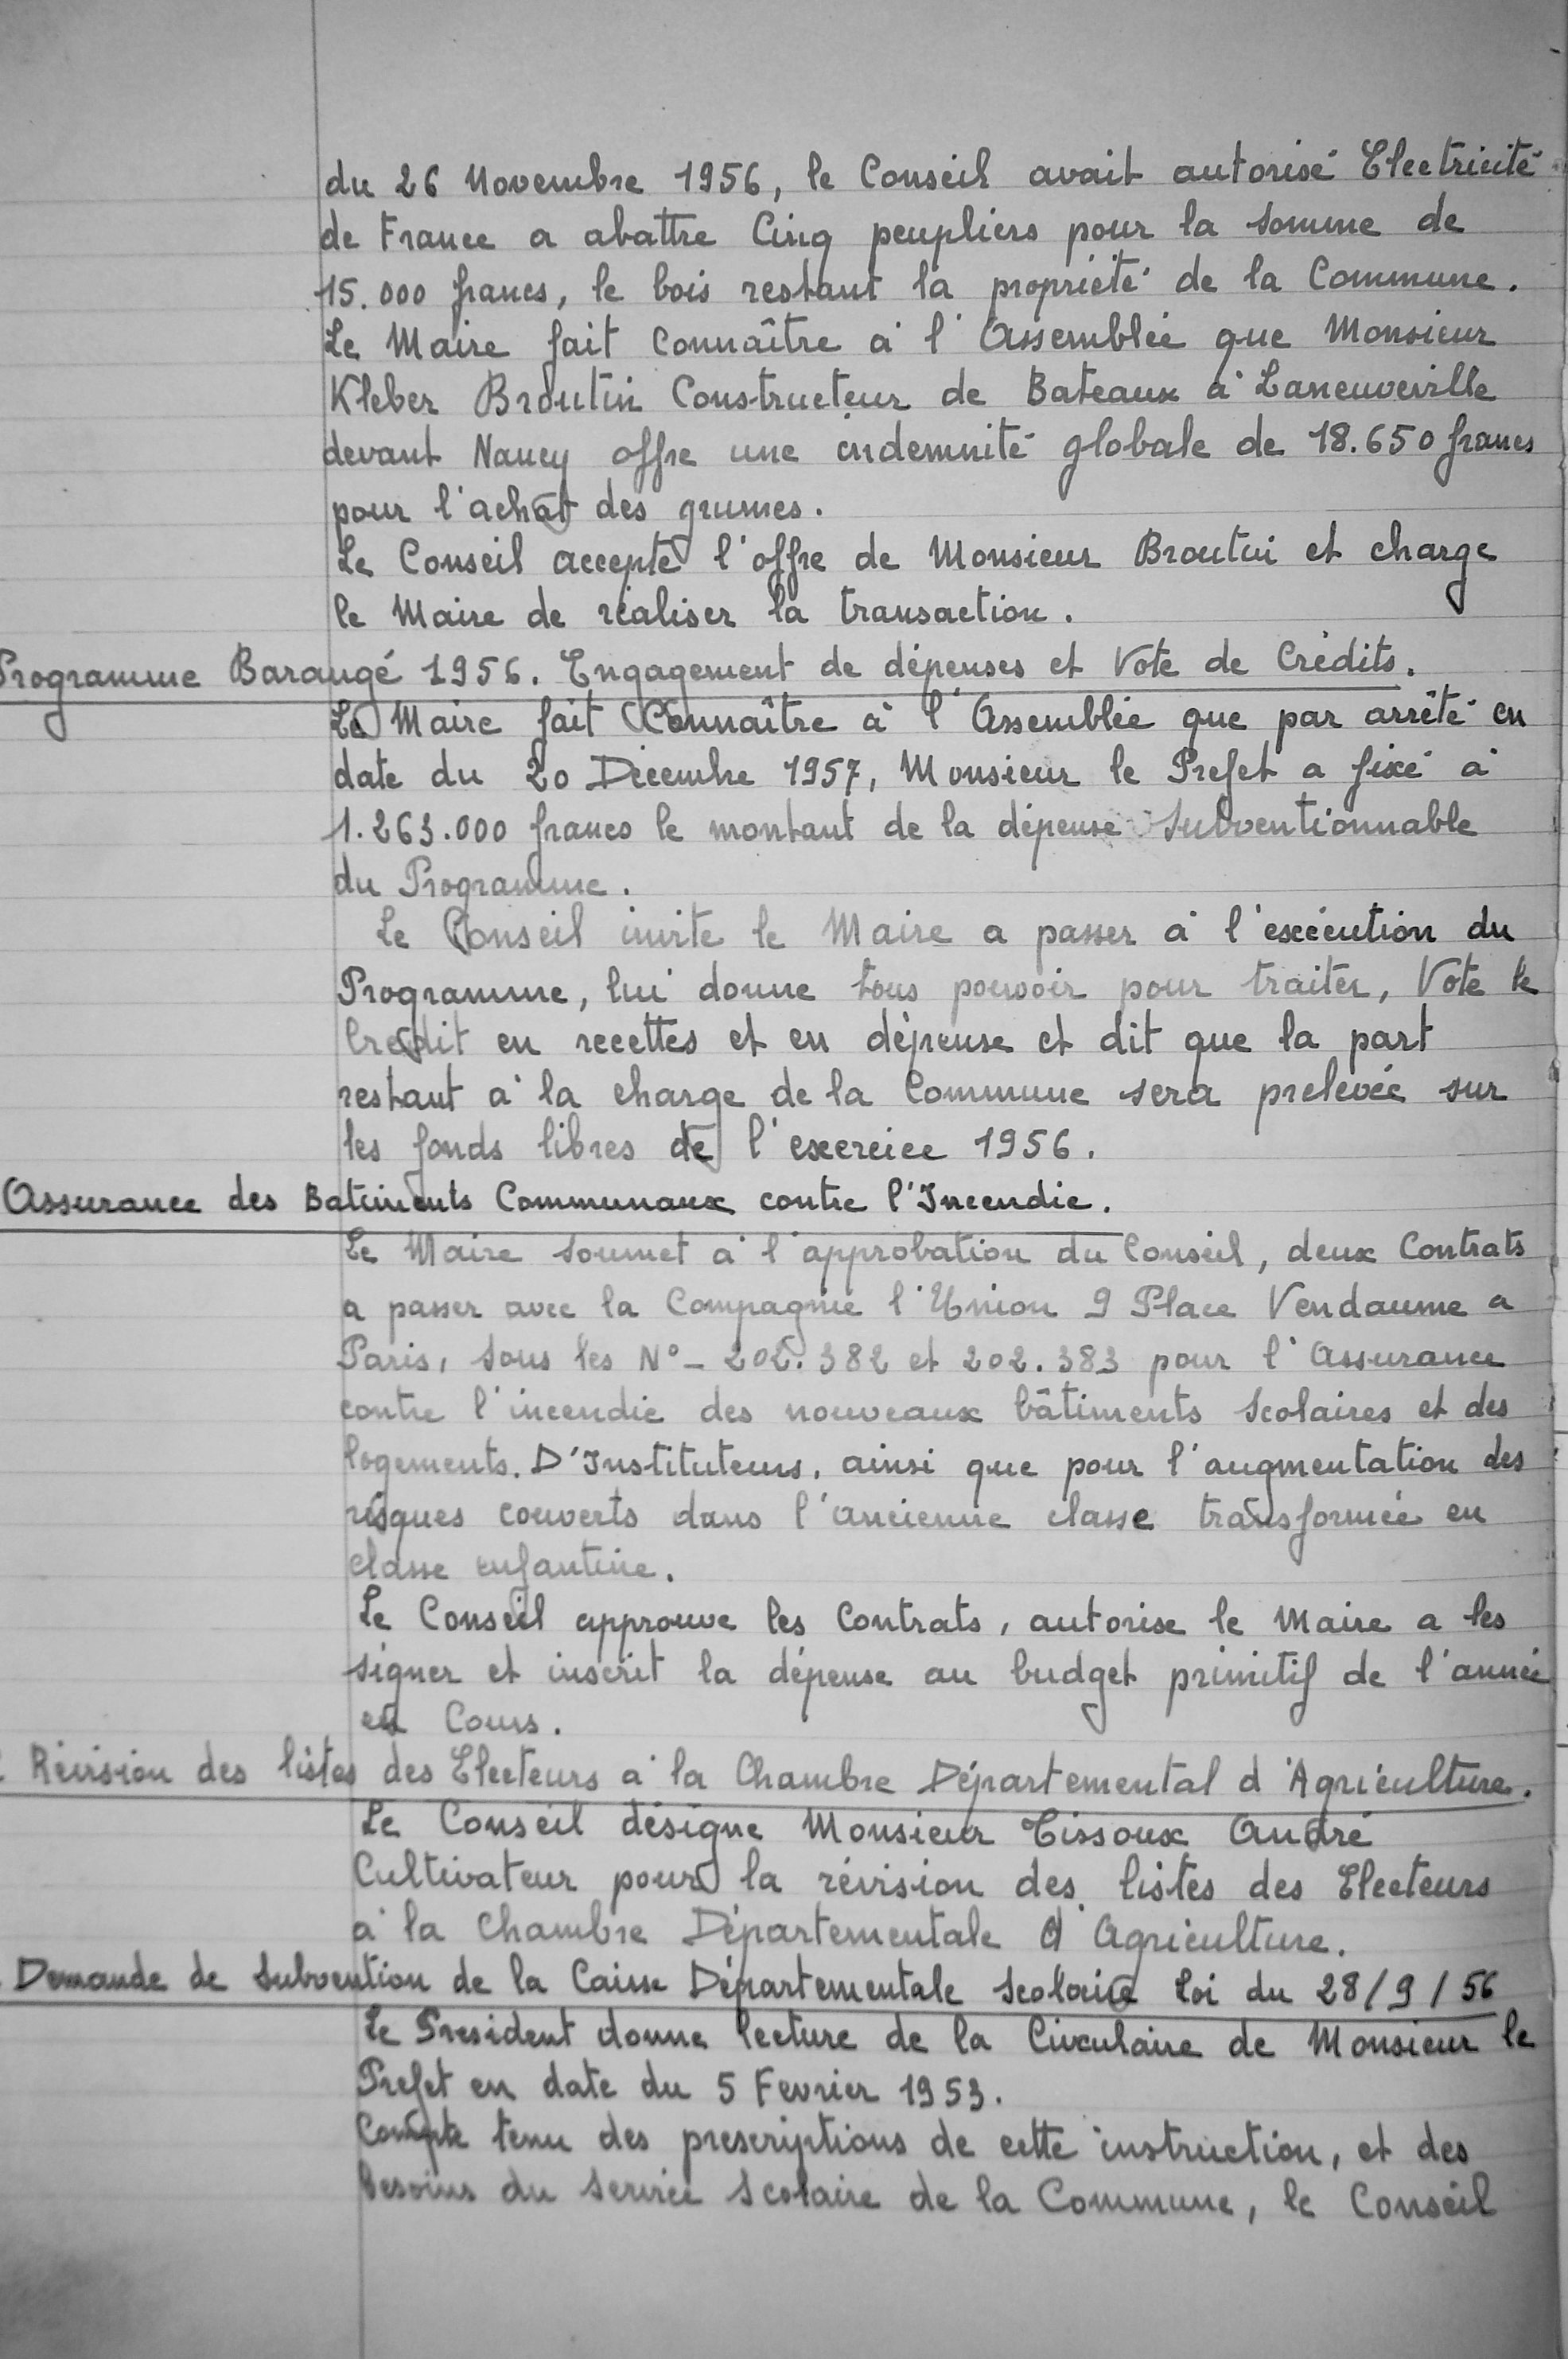 du 26 Novembre 1956, le Conseil avait autorisé Electricité
de France a abattre Cinq peupliers pour la somme de
15.000 francs, le bois restant la propriété de la Commune.
Le Maire fait Connaître à l'Assemblée que Monsieur
Kleber Broutin Constructeur de Bateaux à Laneuveville
devant Nancy offre une indemnité globale de 18.650 francs
pour l'achat des grumes.
Le Conseil accepte l'offre de Monsieur Broutin et charge
le Maire de réaliser la transaction.
Programme Barangé 1956. Engagement de dépenses et Vote de Crédits.
Le Maire fait Connaître à l'Assemblée que par arrêté en
date du 20 Décembre 1957, Monsieur le Prefet a fixé à
1.263.000 francs le montant de la dépense Subventionnable
du Programme.
Le Conseil invite le Maire a passer à l'exécution du
Programme, lui donne tous pouvoir pour traiter, Vote le
Credit en recettes et en dépense et dit que la part
restant à la charge de la Commune sera prelevée sur
les fonds libres de l'exercice 1956.
Assurance des Batiments Communaux contre l'Incendie.
Le Maire soumet à l'approbation du Conseil, deux Contrats
a passer avec la Compagnie l'Union 9 Place Vendaume a
Paris, sous les N°- 202.382 et 202.383 pour l'Assurance
contre l'incendie des nouveaux bâtiments Scolaires et des
logements. D'Instituteurs, ainsi que pour l'augmentation des
risques couverts dans l'ancienne classe transformée en
classe enfantine.
Le Conseil approuve les Contrats, autorise le Maire a les
signer et inscrit la dépense au budget primitif de l'année
en Cours.
Révision des listes des Electeurs à la Chambre Départemental d'Agriculture.
Le Conseil désigne Monsieur Tissoux André
Cultivateur pour la révision des listes des Electeurs
à la Chambre Départementale d'Agriculture.
Demande de Subvention de la Caisse Départementale Scolaire Loi du 28/9/56
Le President donne lecture de la Circulaire de Monsieur le
Prefet en date du 5 Fevrier 1953.
Compte tenu des prescriptions de cette instruction, et des
besoins du service Scolaire de la Commune, le Conseil